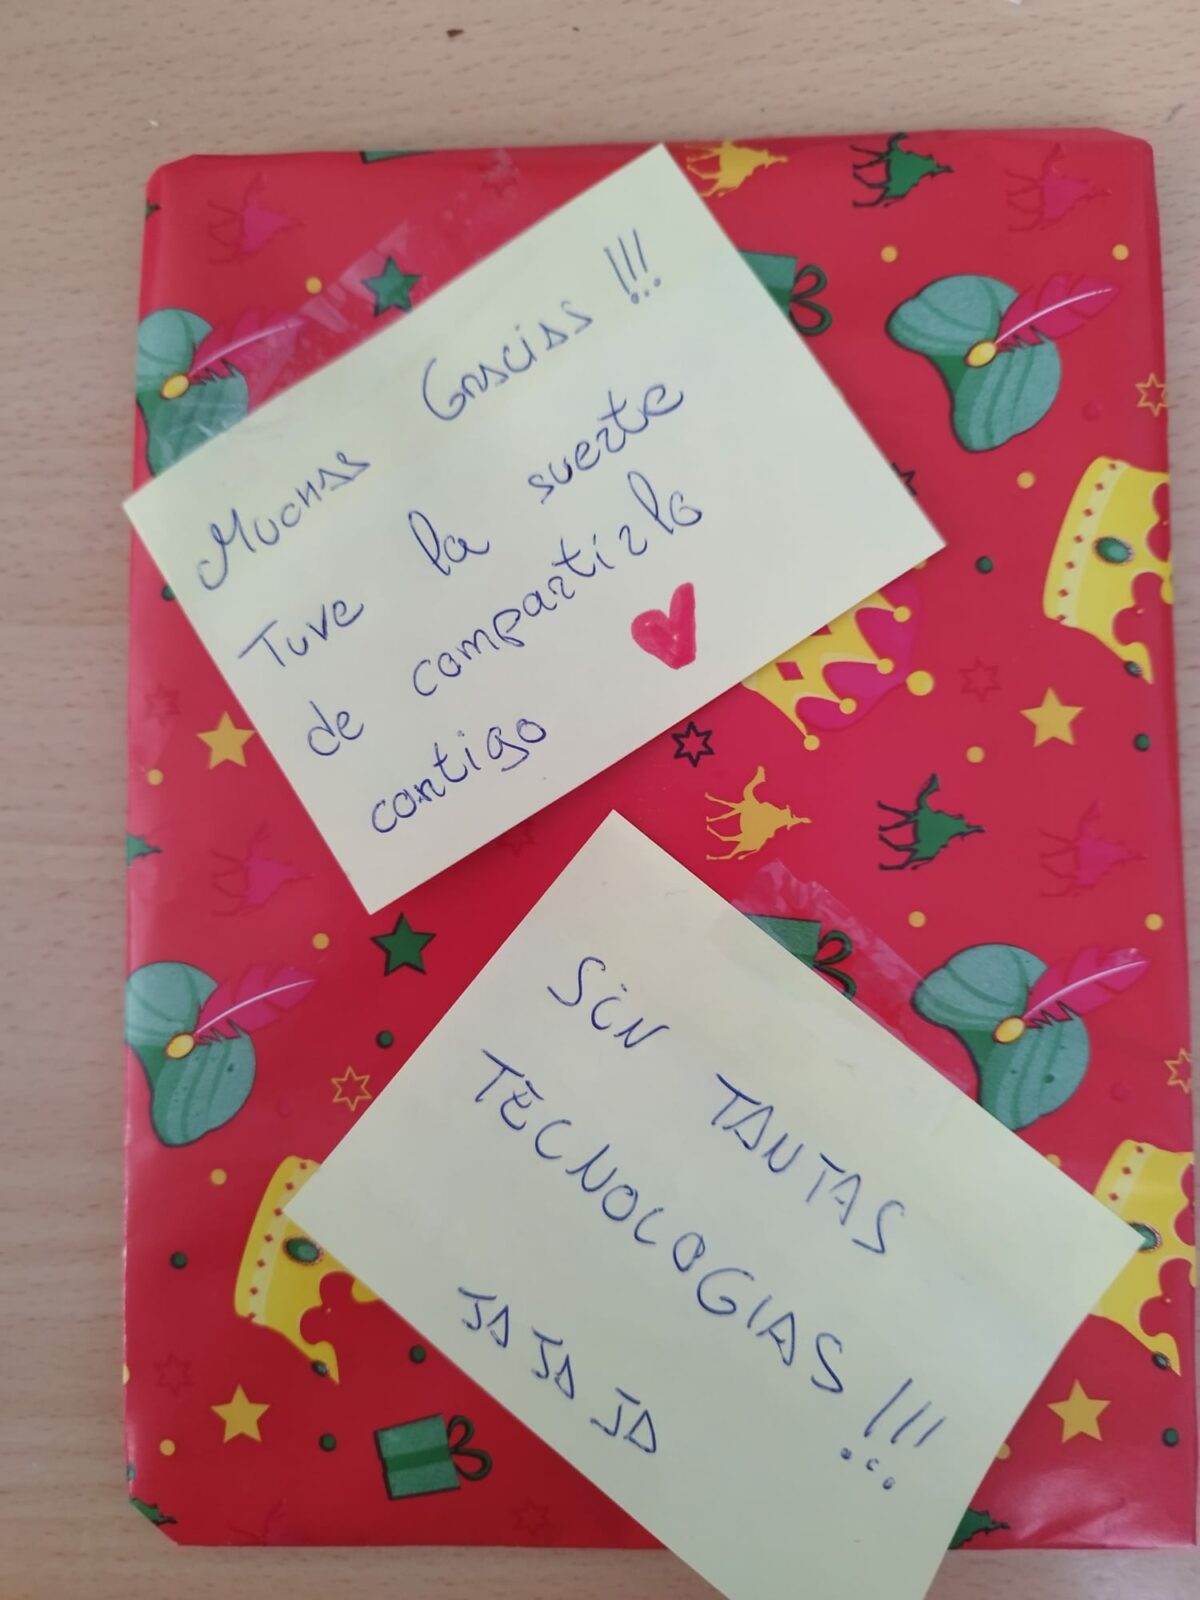 Muchas Gracias !!!
Tuve la suerte
de compartirlo
contigo
SiN TANTAS
TECNOLOGIAS !!!
JA JA JA